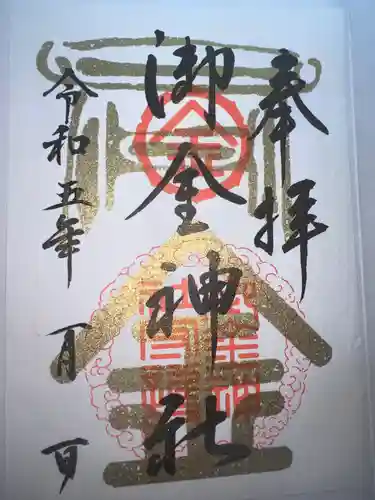 奉拝
御金神社
令和五年 一月一日